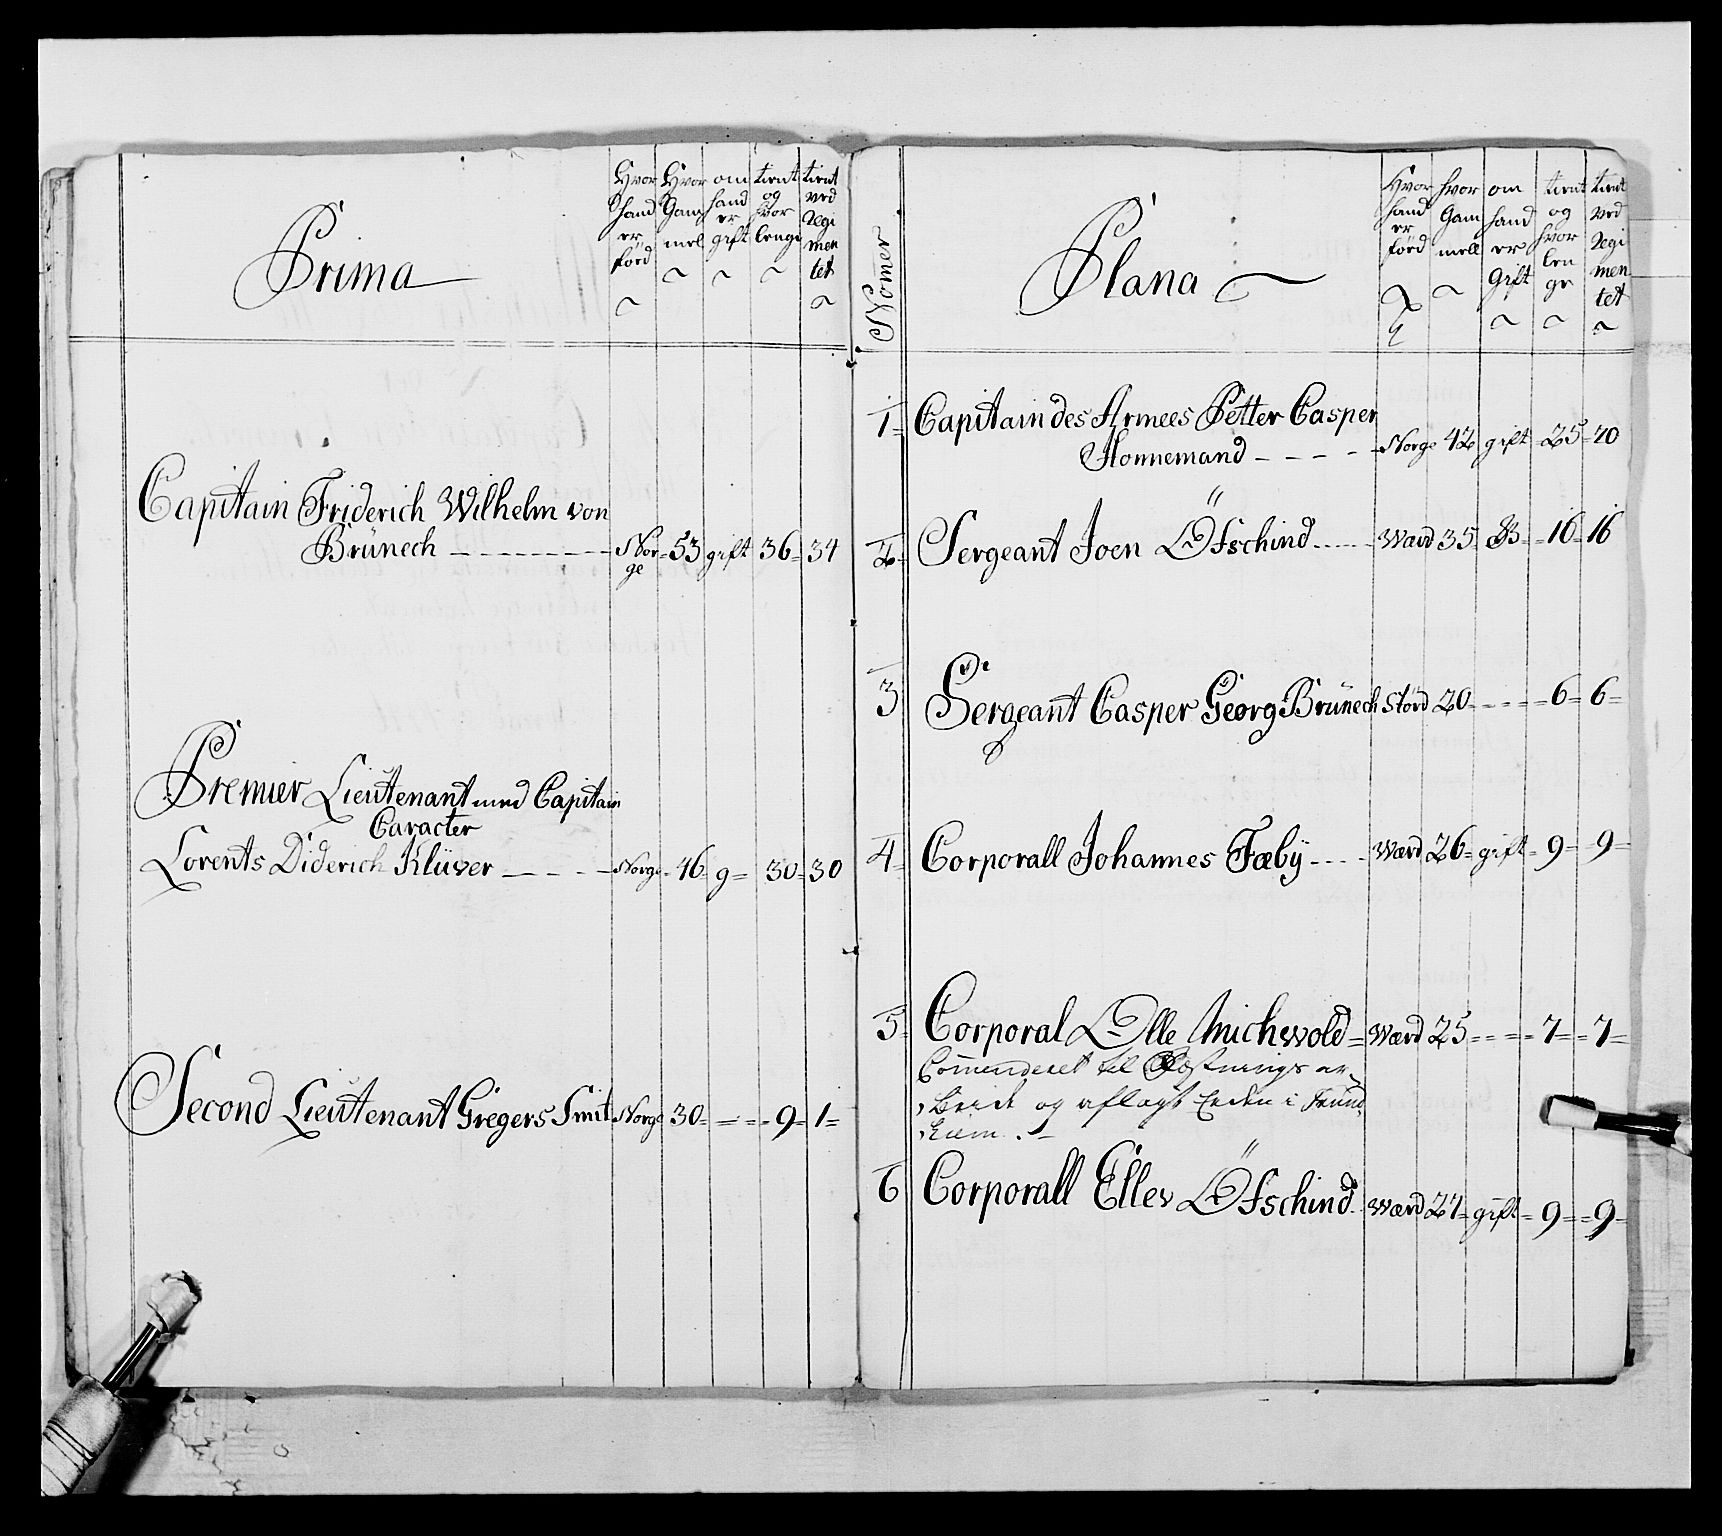 Prima
Hvor hand er förd
Hvor Gamel
om hand er gift
tient og hvor lenge
tient ved Regimentet
Capitain Friderich Wilhelm von
Brünech - - - - - - - - Norge 53 gift 36 = 34
Premier Lieutenant med Capitain
Caracter
Lorents Diderich Klüver - - - - Norge 46 g= 30 = 30
Second Lieutenant Gregers Smit Norge 30 = - - = 9 = 1 =
Nomer
Plana
Hvor hand er förd
hvor Gammell
om hand er Gift
tient og hvor lenge
tient ved Regimentet
1 = Capitain des Armees Petter Casper
Honnemand - - - - - Norge 42 gift = 25 = 20
2 = Sergeant Joen Öfschind - - - Wærd 35 = 16 = 16
3 Sergeant Casper Georg Brünech Störd 20 - - - - = 6 = 6 =
4 = Corporall Johannes Fæby - - - Wærd 26 = gift = 9 = 9 =
5 = Corporal Olle Michwold = Wærd 25 = - - = 7 = = 7 =
Com̅enderet til Fæstnings ar=
beide og aflagt Eeden i Trund
hiem.
6 Corporall Ellev Öfschind Wærd 27 = gift = 9 = = 9 =